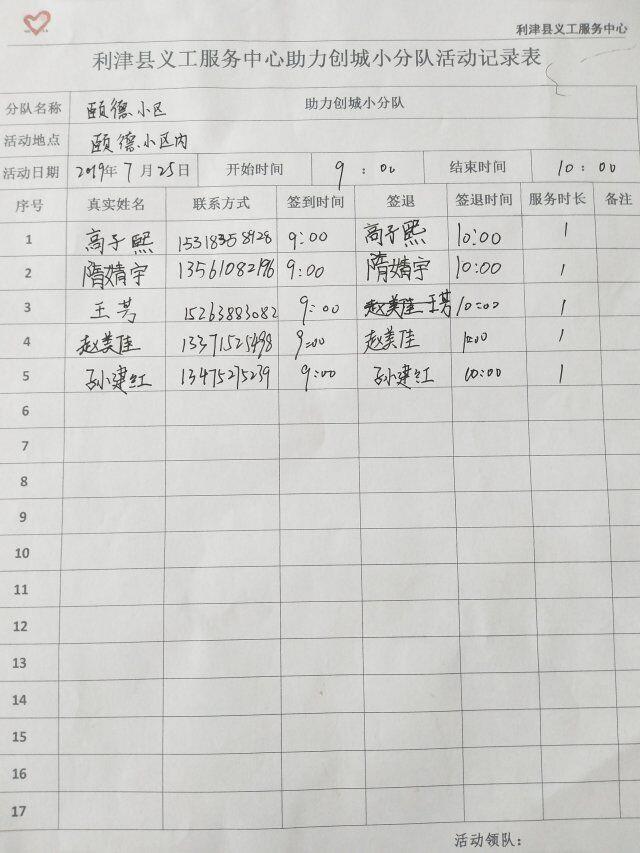 利津县义工服务中心
利津县义工服务中心助力创城小分队活动记录表
分队名称 颐德小区 助力创城小分队
活动地点 颐德小区内
活动日期 2019年7月25日 开始时间 9:00 结束时间 10:00
序号 真实姓名 联系方式 签到时间 签退 签退时间 服务时长 备注
1 高子熙 15318358928 9:00 高子熙 10:00 1
2 隋婧宇 13561082196 9:00 隋婧宇 10:00 1
3 王芳 15263883082 9:00 赵美佳 王芳 10:00 1
4 赵美佳 13371525498 9:00 赵美佳 10:00 1
5 孙建红 13475275239 9:00 孙建红 10:00 1
6
7
8
9
10
11
12
13
14
15
16
17
活动领队：